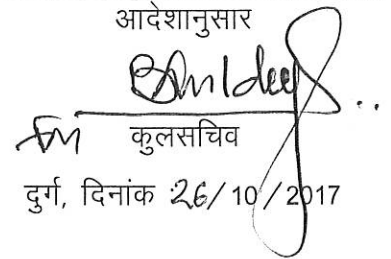 आदेशानुसार
कुलसचिव
दुर्ग, दिनांक 26/10/2017